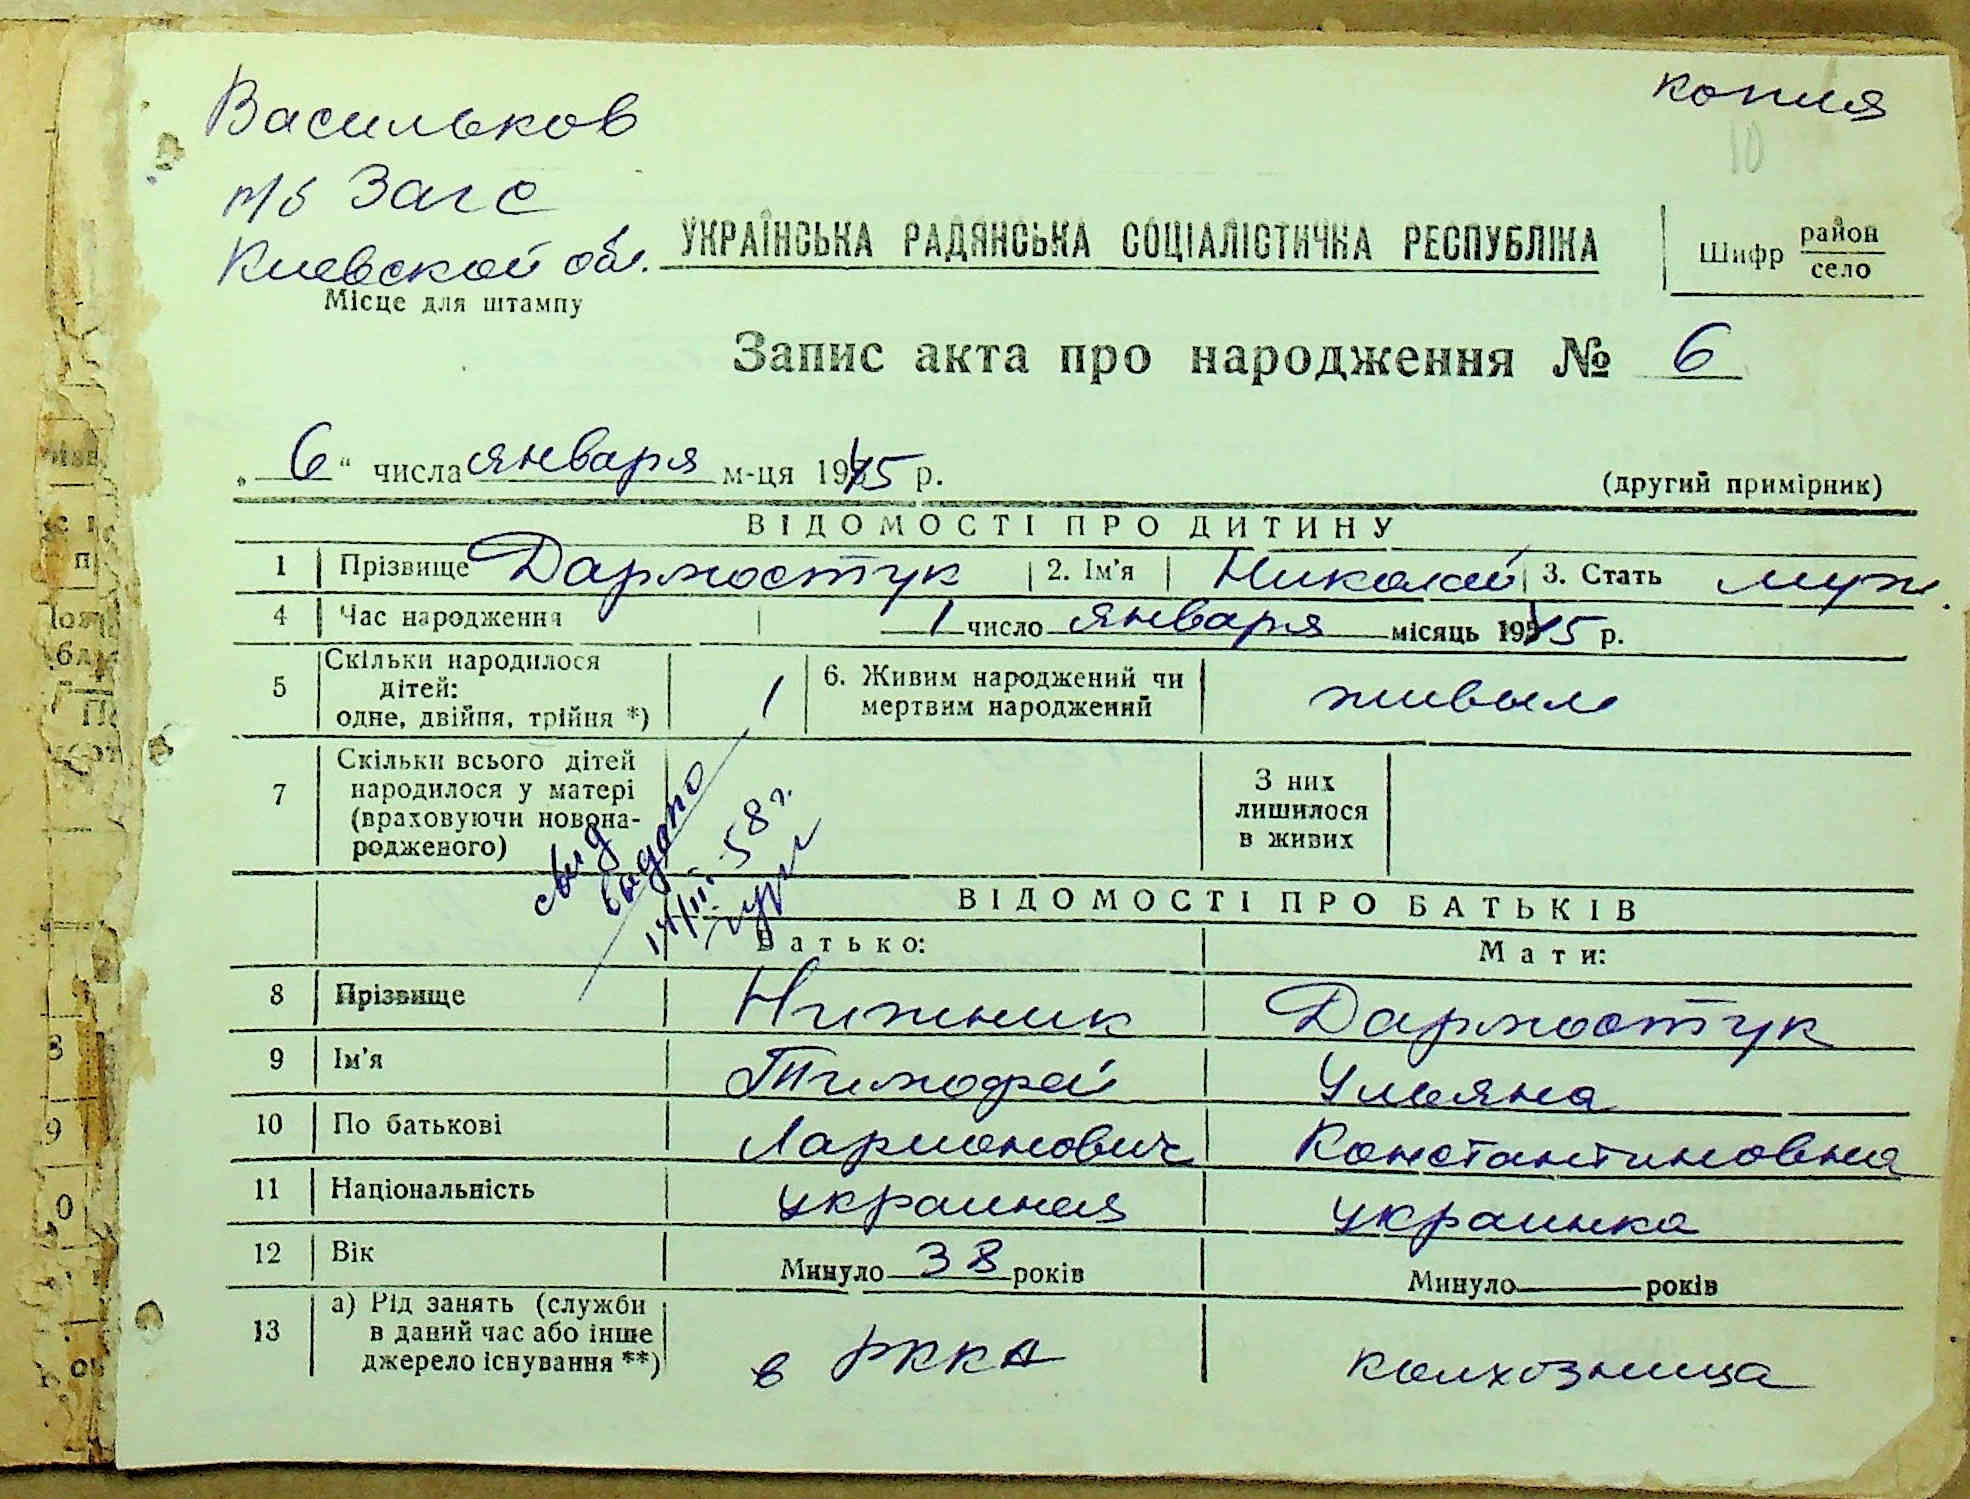 Васильков
п/б Загс
Киевской обл.
копия
10
УКРАЇНСЬКА РАДЯНСЬКА СОЦІАЛІСТИЧНА РЕСПУБЛІКА
Шифр район
село
Місце для штампу
Запис акта про народження № 6
„ 6 “ числа января м-ця 1945 р.
(другий примірник)
ВІДОМОСТІ ПРО ДИТИНУ
1 Прізвище Дармостук 2. Ім'я Николай 3. Стать муж.
4 Час народження 1 число января місяць 1945 р.
5 Скільки народилося дітей: одне, двійня, трійня *) 1
6. Живим народжений чи мертвим народжений живым
7 Скільки всього дітей народилося у матері (враховуючи новона-родженого)
З них лишилося в живих
свид
выдано
58 г.
ВІДОМОСТІ ПРО БАТЬКІВ
Батько: Мати:
8 Прізвище Нижник Дармостук
9 Ім'я Тимофей Ульяна
10 По батькові Ларионович Константиновна
11 Національність украинец украинка
12 Вік Минуло 38 років Минуло років
13 а) Рід занять (служби в даний час або інше джерело існування **) в РККА колхозница